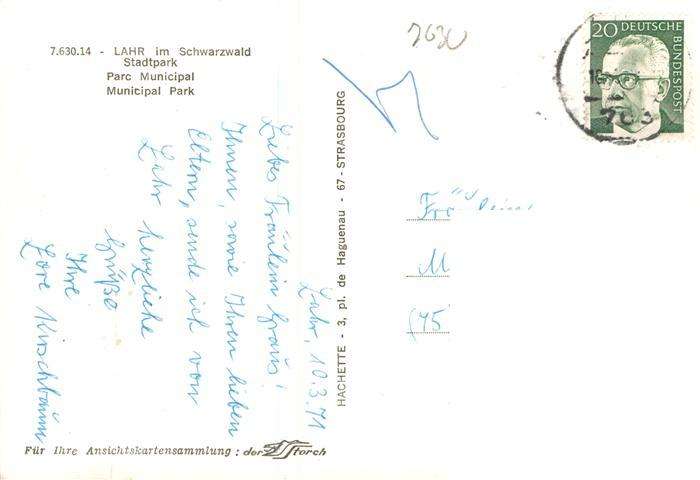 7.630.14 - LAHR im Schwarzwald
Stadtpark
Parc Municipal
Municipal Park
7630
20 DEUTSCHE
BUNDESPOST
Lahr, 10.3.71
Liebes Fräulein Graus!
Ihnen, sowie Ihren lieben
Eltern, sende ich von
Lahr herzliche
Grüße
Ihre
Lore Kirschbaum
HACHETTE - 3, pl. de Haguenau - 67 - STRASBOURG
M
(75
Für Ihre Ansichtskartensammlung : der Storch